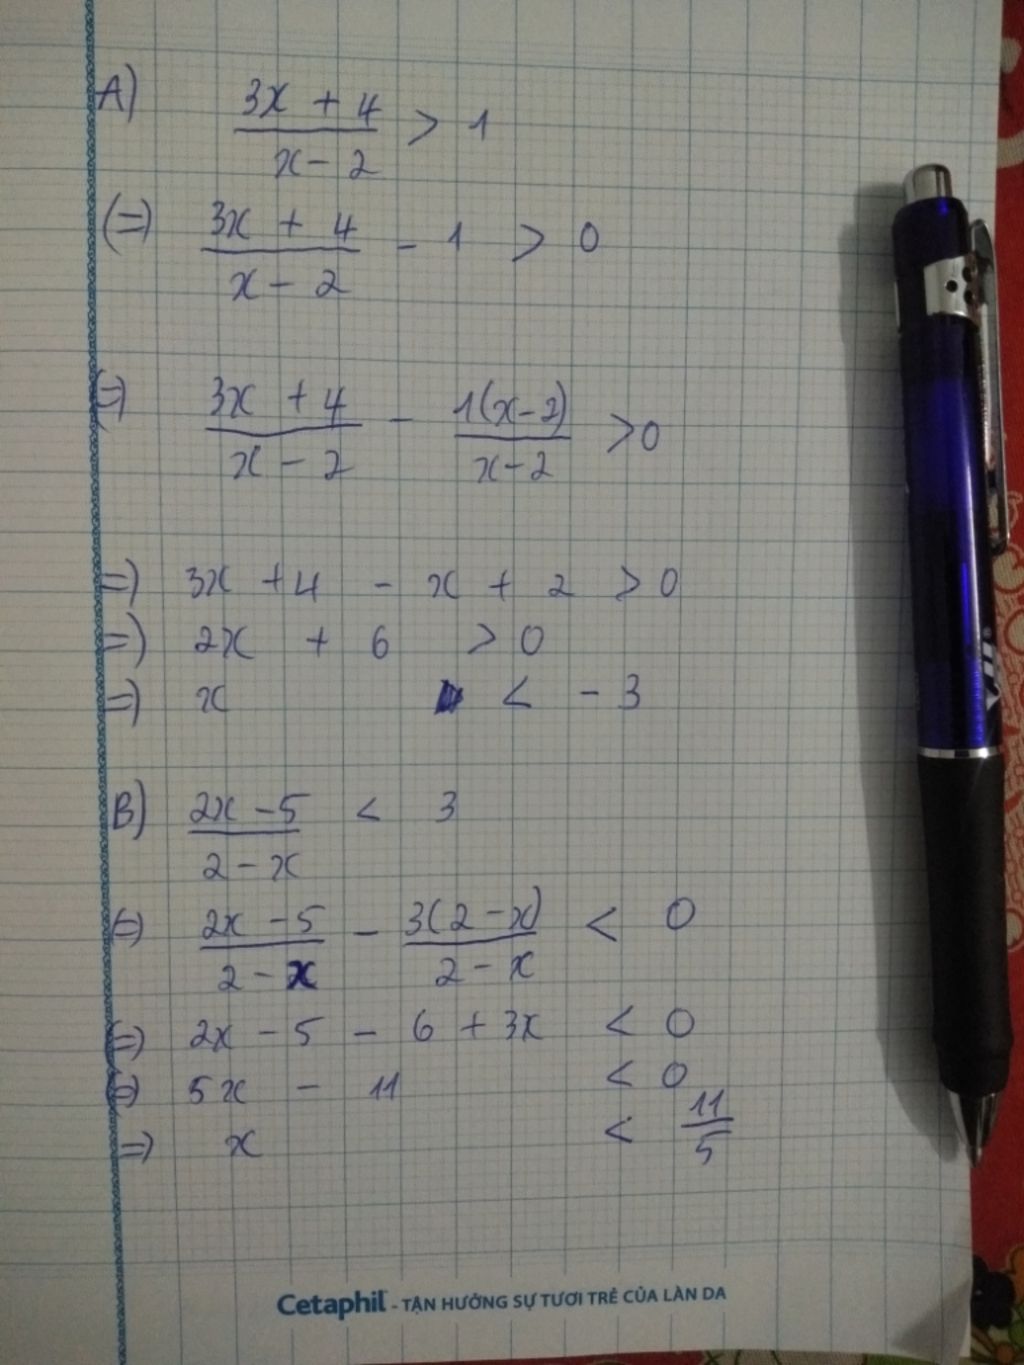 A) (3x + 4)/(x - 2) > 1
(=) (3x + 4)/(x - 2) - 1 > 0
(=) (3x + 4)/(x - 2) - 1(x - 2)/(x - 2) > 0
=) 3x + 4 - x + 2 > 0
=) 2x + 6 > 0
=) x < - 3
B) (2x - 5)/(2 - x) < 3
(=) (2x - 5)/(2 - x) - 3(2 - x)/(2 - x) < 0
(=) 2x - 5 - 6 + 3x < 0
(=) 5x - 11 < 0
=) x < 11/5
Cetaphil - TẬN HƯỞNG SỰ TƯƠI TRẺ CỦA LÀN DA